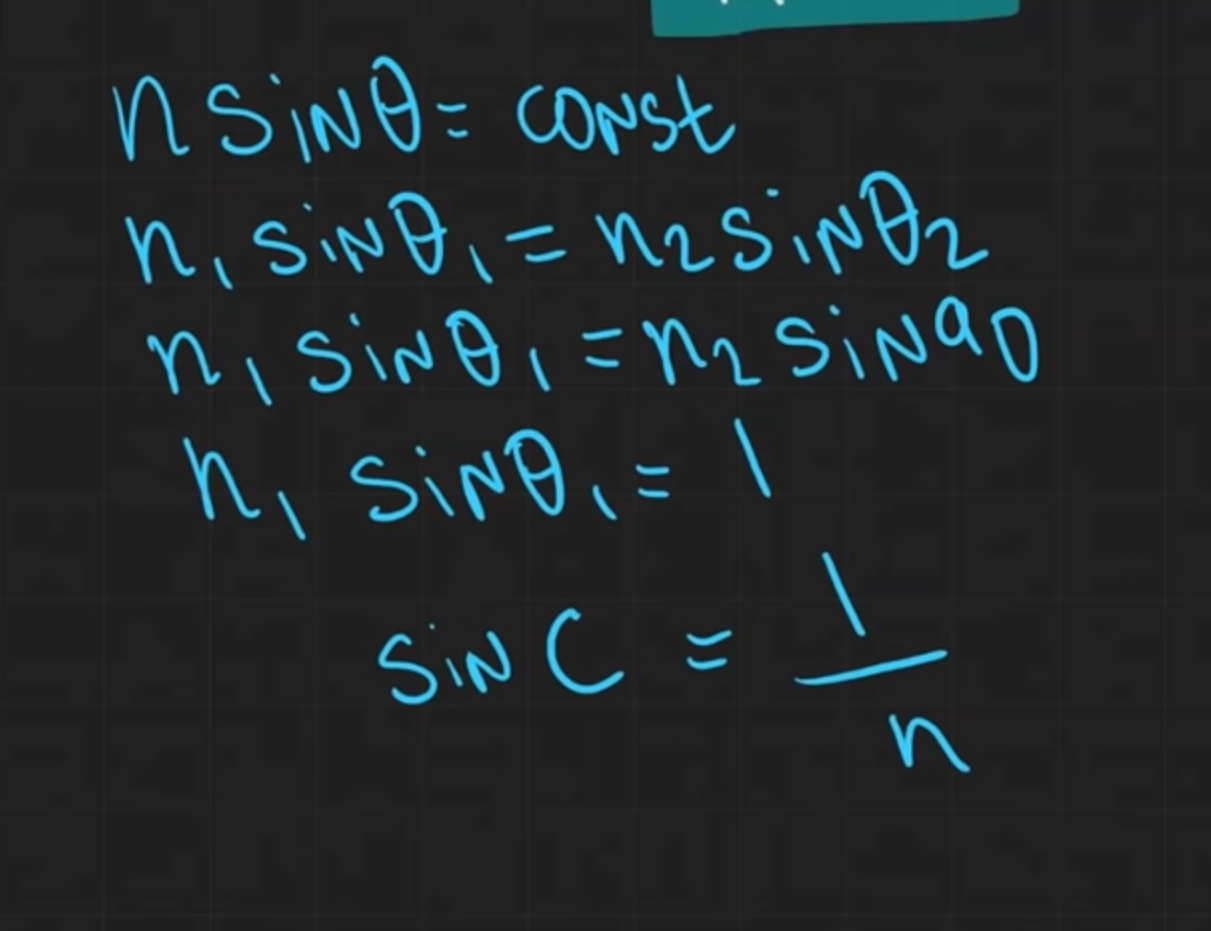 n sinθ = const
n₁ sinθ₁ = n₂ sinθ₂
n₁ sinθ₁ = n₂ sin90
n₁ sinθ₁ = 1
sin C = 1/n